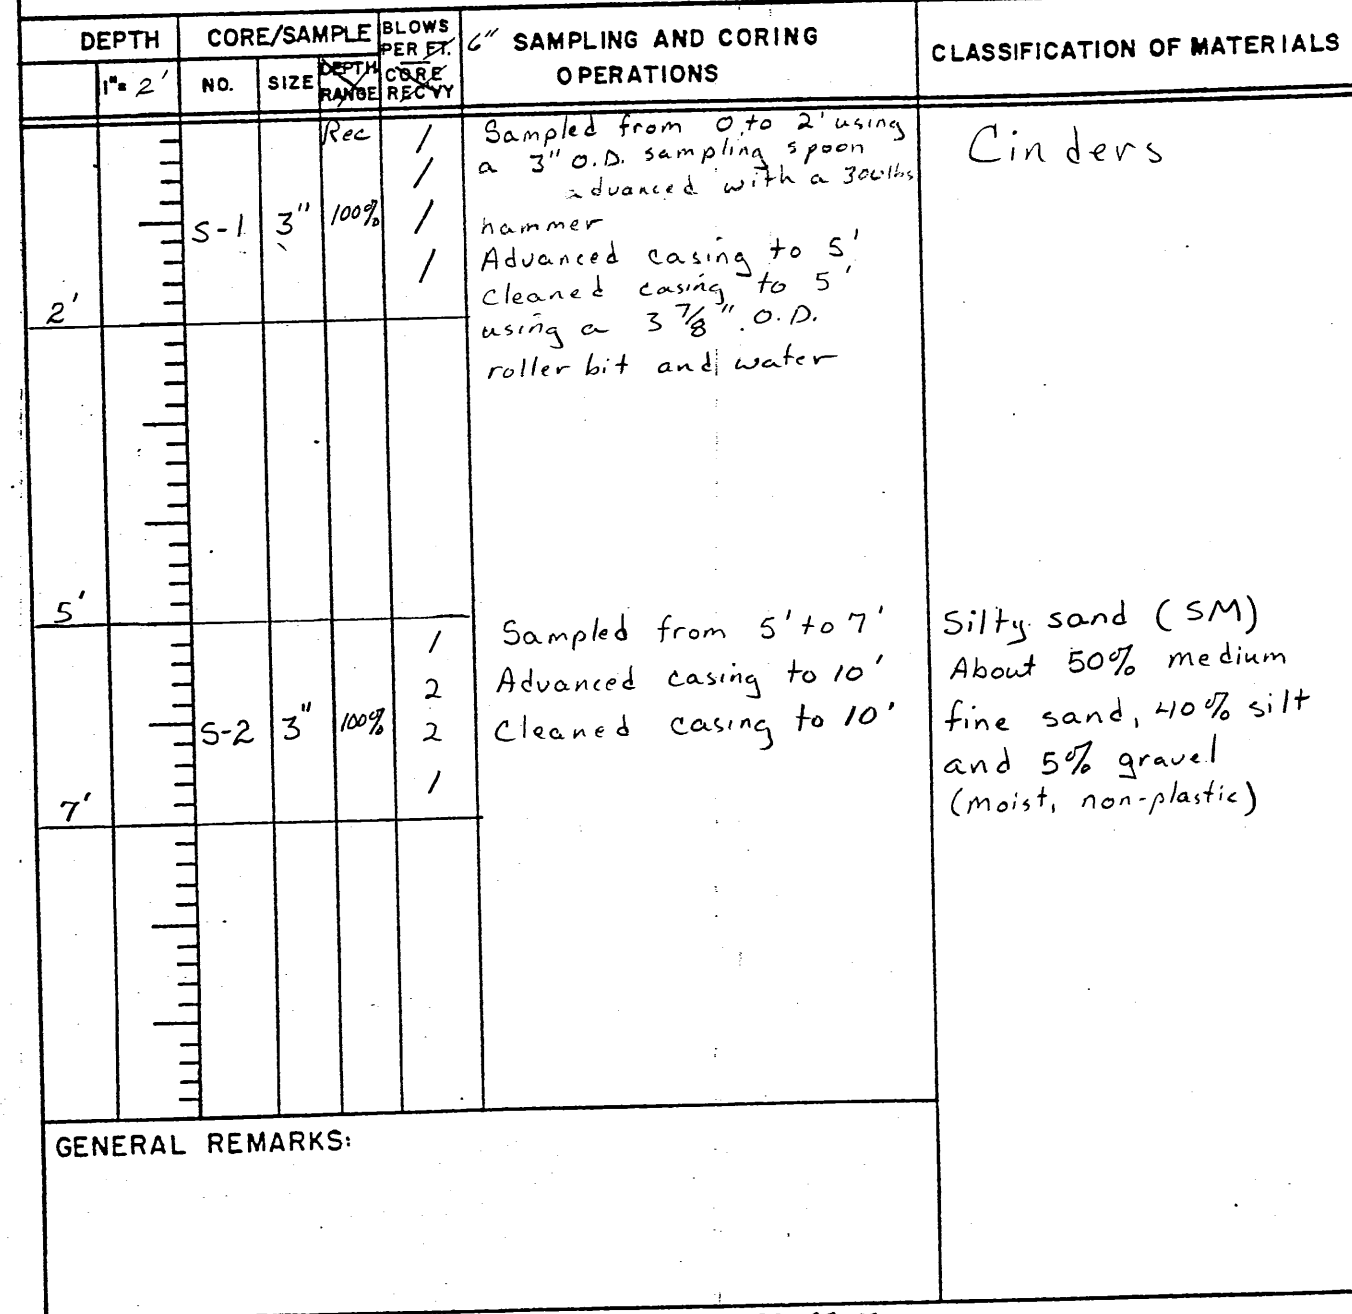 DEPTH
CORE/SAMPLE
BLOWS
PER FT. 6"
CORE
REC'VY
SAMPLING AND CORING
OPERATIONS
CLASSIFICATION OF MATERIALS
1"= 2'
NO.
SIZE
DEPTH
RANGE
Rec
S-1
3"
100%
1
1
1
1
Sampled from 0 to 2' using
a 3" O.D. sampling spoon
advanced with a 300 lbs
hammer
Advanced casing to 5'
Cleaned casing to 5'
using a 3 7/8" O.D.
roller bit and water
Cinders
2'
5'
S-2
3"
100%
1
2
2
1
Sampled from 5' to 7'
Advanced casing to 10'
Cleaned casing to 10'
Silty sand (SM)
About 50% medium
fine sand, 40% silt
and 5% gravel
(moist, non-plastic)
7'
GENERAL REMARKS: